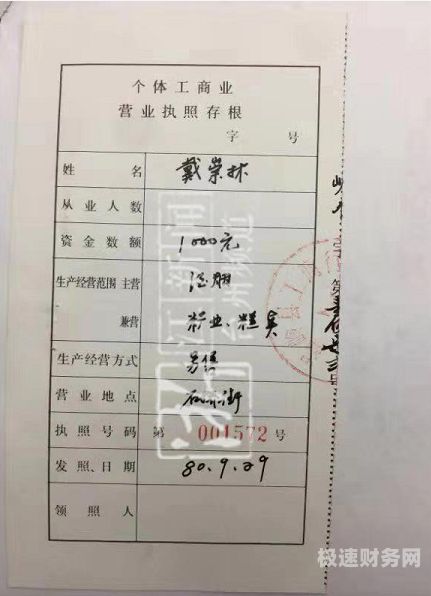 个体工商业
营业执照存根
字 号
姓名 戴崇林
从业人数
资金数额 1000元
生产经营范围 主营 酒棚
兼营 糕
生产经营方式 另售
营业地点 街
执照号码 第 001572 号
发照日期 80.9.29
领照人
新闻
台州频道
极速财务网